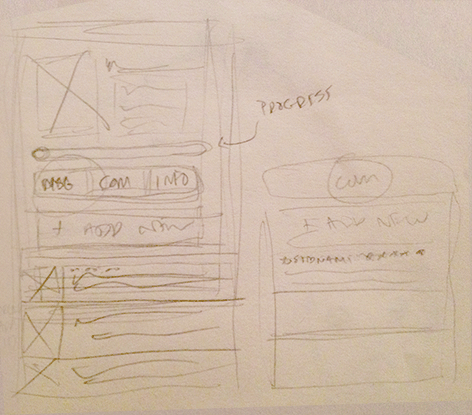 PROGRESS
MSG COM INFO
+ ADD NEW
COM
+ ADD NEW